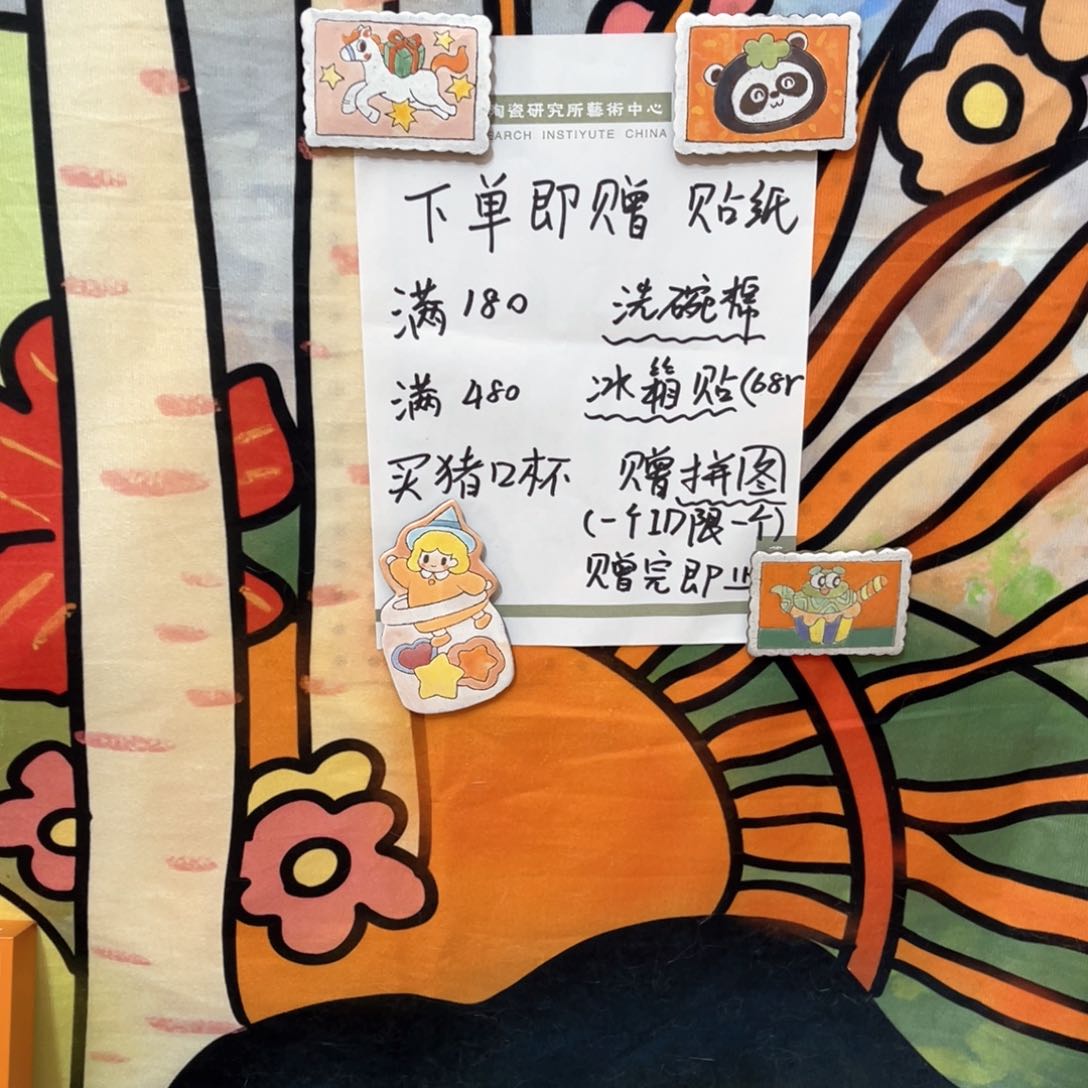 陶瓷研究所藝術中心
EARCH INSTIYUTE CHINA
下单即赠 贴纸
满 180 洗碗棉
满 480 冰箱贴(68r
买猪口杯 赠拼图
(一个ID限一个)
赠完即止